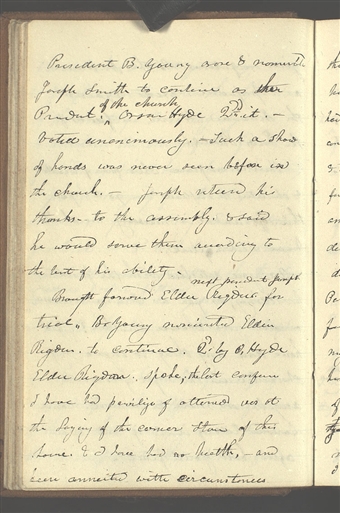 President B. Young arose & nominated
Joseph Smith to continue as the
Presidnt. of the church Orson Hyde 2d it. —
Voted unanimously. — Such a show
of hands was never seen before in
the church. — Joseph returned his
thanks to the assembly. & said
he would serve them according to
the best of his ability.
next president Joseph
Brought forward Elder Rigdon for
trial. B. Young nominated Elder
Rigdon. to continue. 2d. by O. Hyde
Elder Rigdon. spoke, the last conference
I have had privilege of attending was at
the laying of the corner stone of this
house & I have had no health, — and
been connected with circumstances